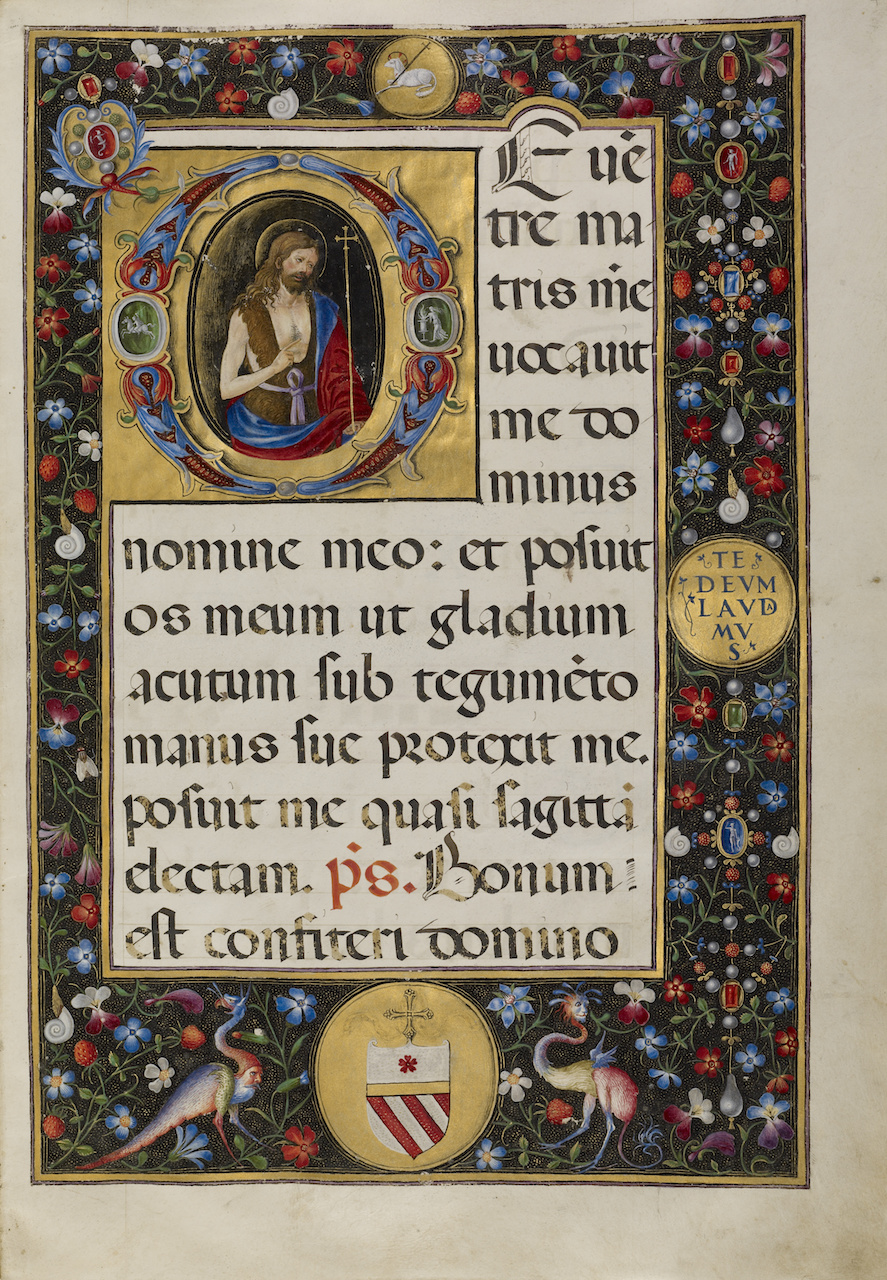 De vē
tre ma
tris mē
uocauit
me do
minus
nomine meo: et posuit
os meum ut gladium
acutum sub tegumēto
manus sue protexit me.
posuit me quasi sagittā
electam. p̄s. Bonum
est confiteri domino
TE
DEVM
LAVDA
MV
S